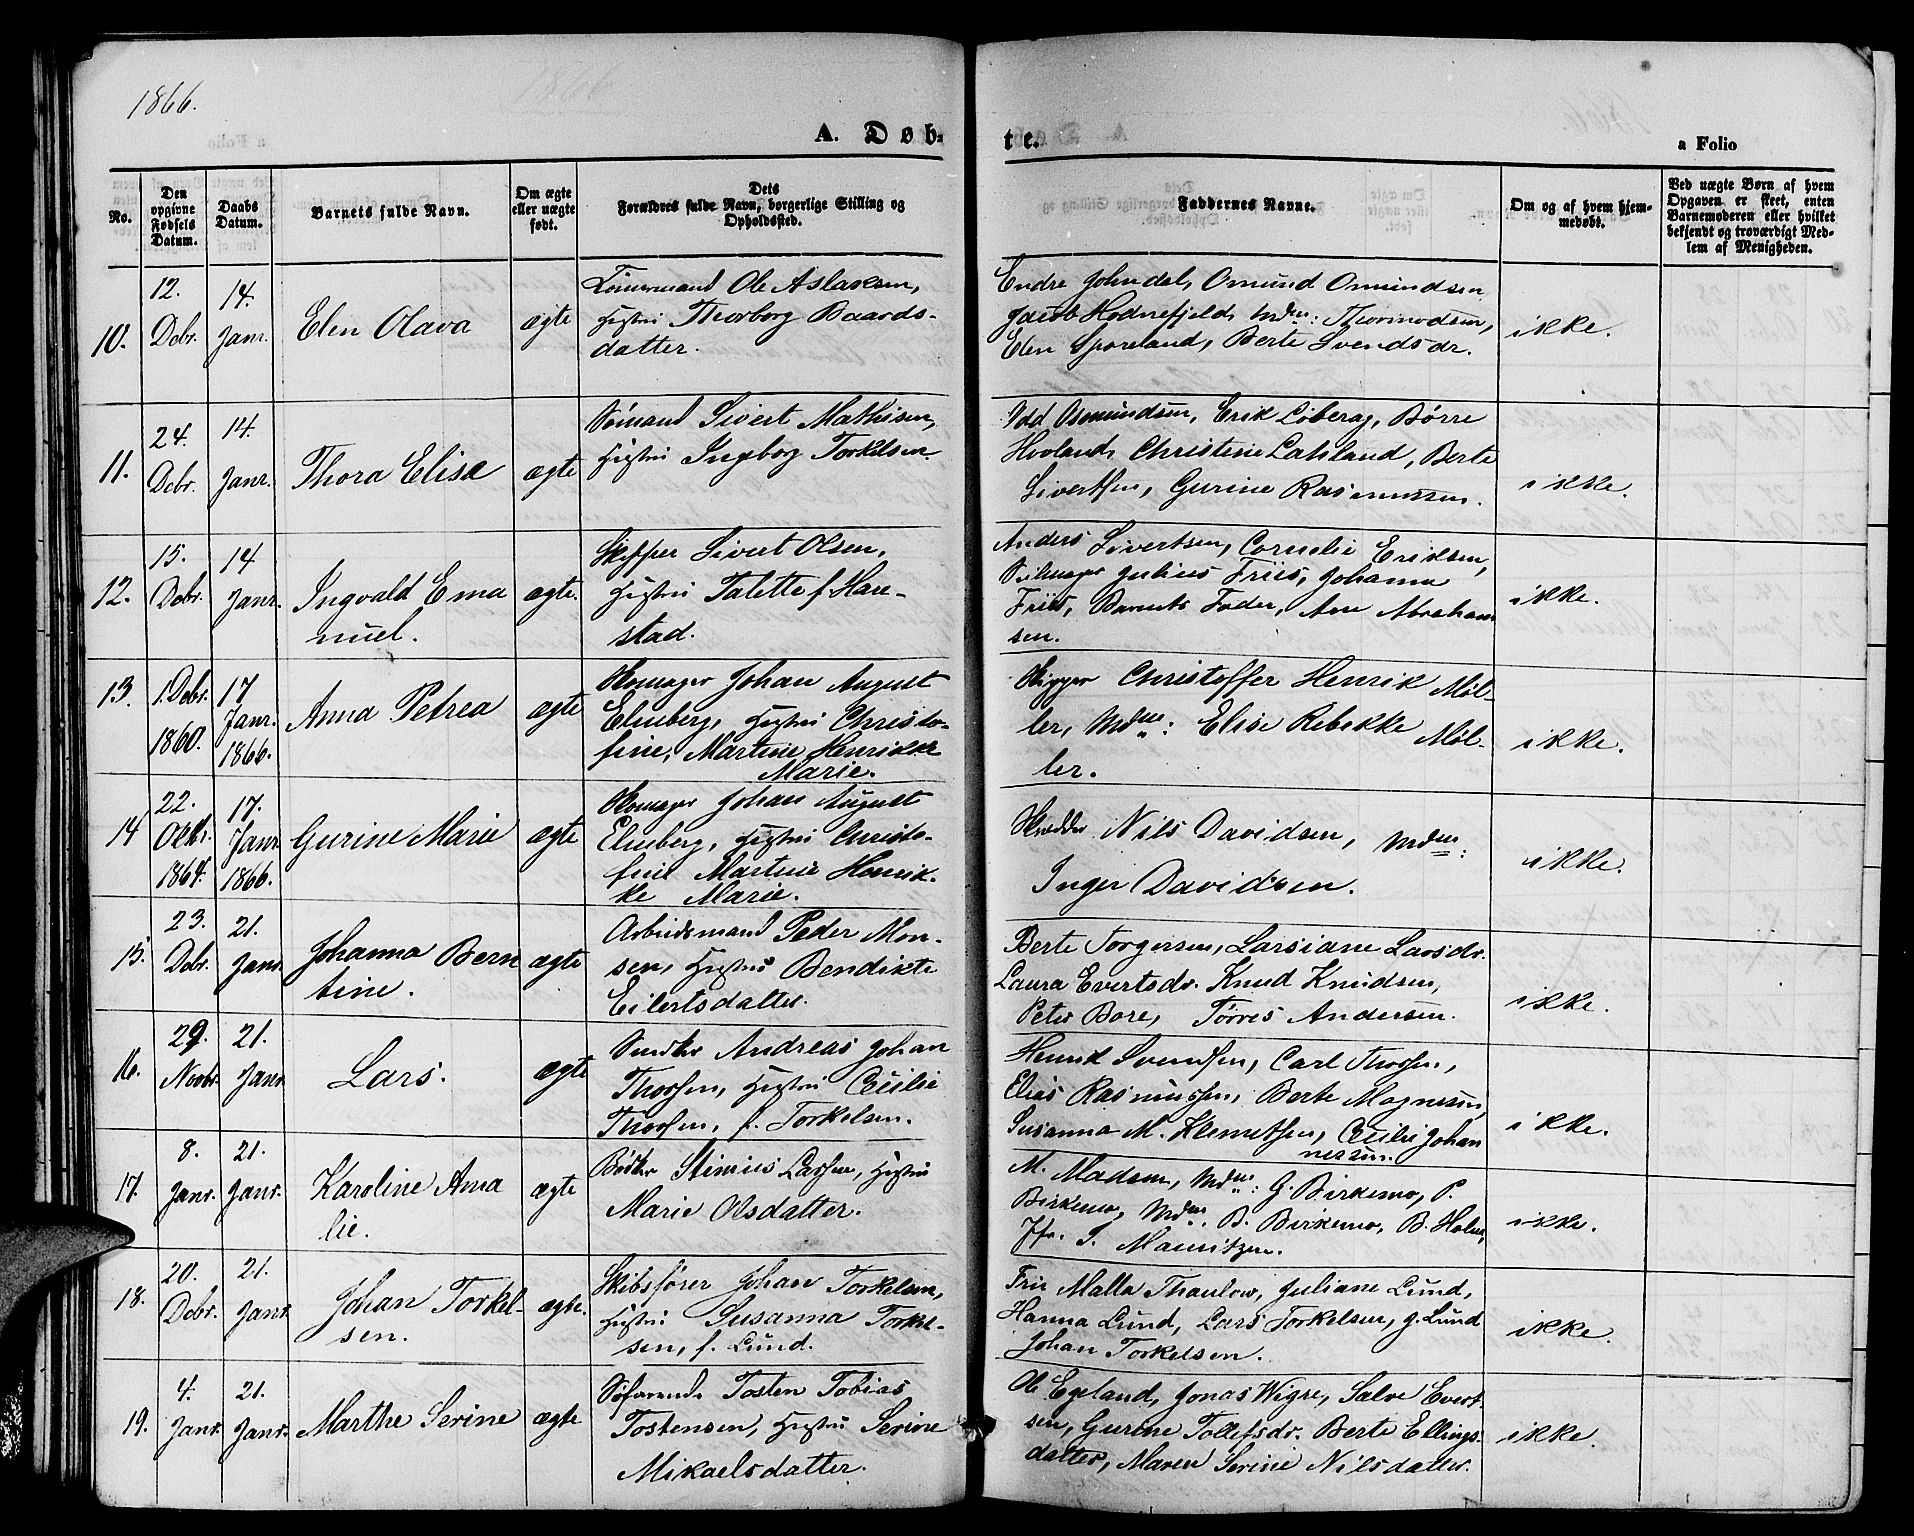 1866.
A. Døb-
te.
a Folio
No.
Den opgivne Fødsels Datum.
Daabs Datum.
Barnets fulde Navn.
Om ægte eller uægte født.
Dets Forældres fulde Navn, borgerlige Stilling og Opholdssted.
Faddernes Navne.
Om og af hvem hjemmedøbt.
Ved uægte Børn af hvem Opgaven er skeet, enten Barnemoderen eller hvilket bekjendt og troværdigt Medlem af Menigheden.
10.
12. Debr.
14. Janr.
Elen Olava
ægte
Tømermand Ole Aslaksen,
Hustru Thorborg Baards-
datter.
Endre Johndal, Omund Omundsen
Jacob Hodnefjeld, Mdm: Thormodsen,
Elen Sporeland, Berte Svendsdr.
ikke.
11.
24. Debr.
14. Janr.
Thora Elise
ægte
Sømand Sivert Mathisen,
Hustru Ingeborg Torkelsen.
Odd Osmundsen, Erik Loberag, Børre
Hovland, Christine Lalsland, Berte
Sivertsen, Gurine Rasmussen.
ikke.
12.
15. Debr.
14 Janr.
Ingvald Ema
nuel.
ægte.
Skipper Sivert Olsen,
Hustru Talette f. Hare-
stad.
Anders Sivertsen, Cornelie Eriksen,
Seilmager Julius Friis, Johanna
Friis, Barnets Fader, Ane Abraham
sen.
ikke.
13.
1. Debr. 1860.
17 Janr. 1866.
Anna Petrea
ægte
Skomager Johan August
Elmberg, Hustru Christo-
fine, Martine Henrikke
Marie.
Skipper Christoffer Henrik Møl-
ler, Mdm: Elise Rebekke Møl-
ler.
ikke.
14
22. Oktbr. 1864.
17. Janr 1866.
Gurine Marie
ægte
Skomager Johan August
Elmberg, Hustru Christo-
fine Martine Henrik-
ke Marie.
Skrædder Nils Davidsen, Mdm:
Inger Davidsen.
ikke.
15.
23. Debr.
21. Janr.
Johanna Bern
tine.
ægte
Arbeidsmand Peder Mon-
sen, Hustru Bendikte
Eilertsdatter.
Berte Torgersen, Larsiane Larsdr.
Laura Evertsdr. Knud Knudsen,
Peter Bore, Tørres Andersen.
ikke.
16.
29. Novbr.
21. Janr.
Lars.
ægte
Snedker Andreas Johan
Thorsen, Hustru Cecilie
Thorsen, f. Torkelsen.
Svendsen, Carl Thorsen,
Elias Rasmussen, Berte Magnesen,
Susanna M. Klemetsen, Cecilie Johan
nessen.
ikke.
17.
8. Janr.
21. Janr.
Karoline Ama
lie.
ægte
Bødker Stinius Larsen, Hustru
Marie Olsdatter.
M. Madsen, Mdm: G. Birkemo, P.
Birkemo, Mdm. B. Birkemo, B. Holm,
Jfr. S. Mauritzen.
ikke.
18.
20. Debr.
21. Janr.
Johan Torkel-
sen.
ægte.
Skibsfører Johan Torkelsen,
Hustru Susanna Torkel-
sen, f. Lund.
Fru Malla Thaulow, Juliane Lund,
Hanna Lund, Lars Torkelsen, G. Lund
Johan Torkelsen.
ikke.
19.
4. Janr.
21. Janr.
Marthe Serine
ægte
Søfarende Tosten Tobias
Tostensen, Hustru Serine
Mikaelsdatter.
O. Egeland, Jonas Wigre, Salve Evert-
sen, Gurine Tollefsdr. Berte Ellings-
datter, Maren Serine Nilsdatter.
ikke.